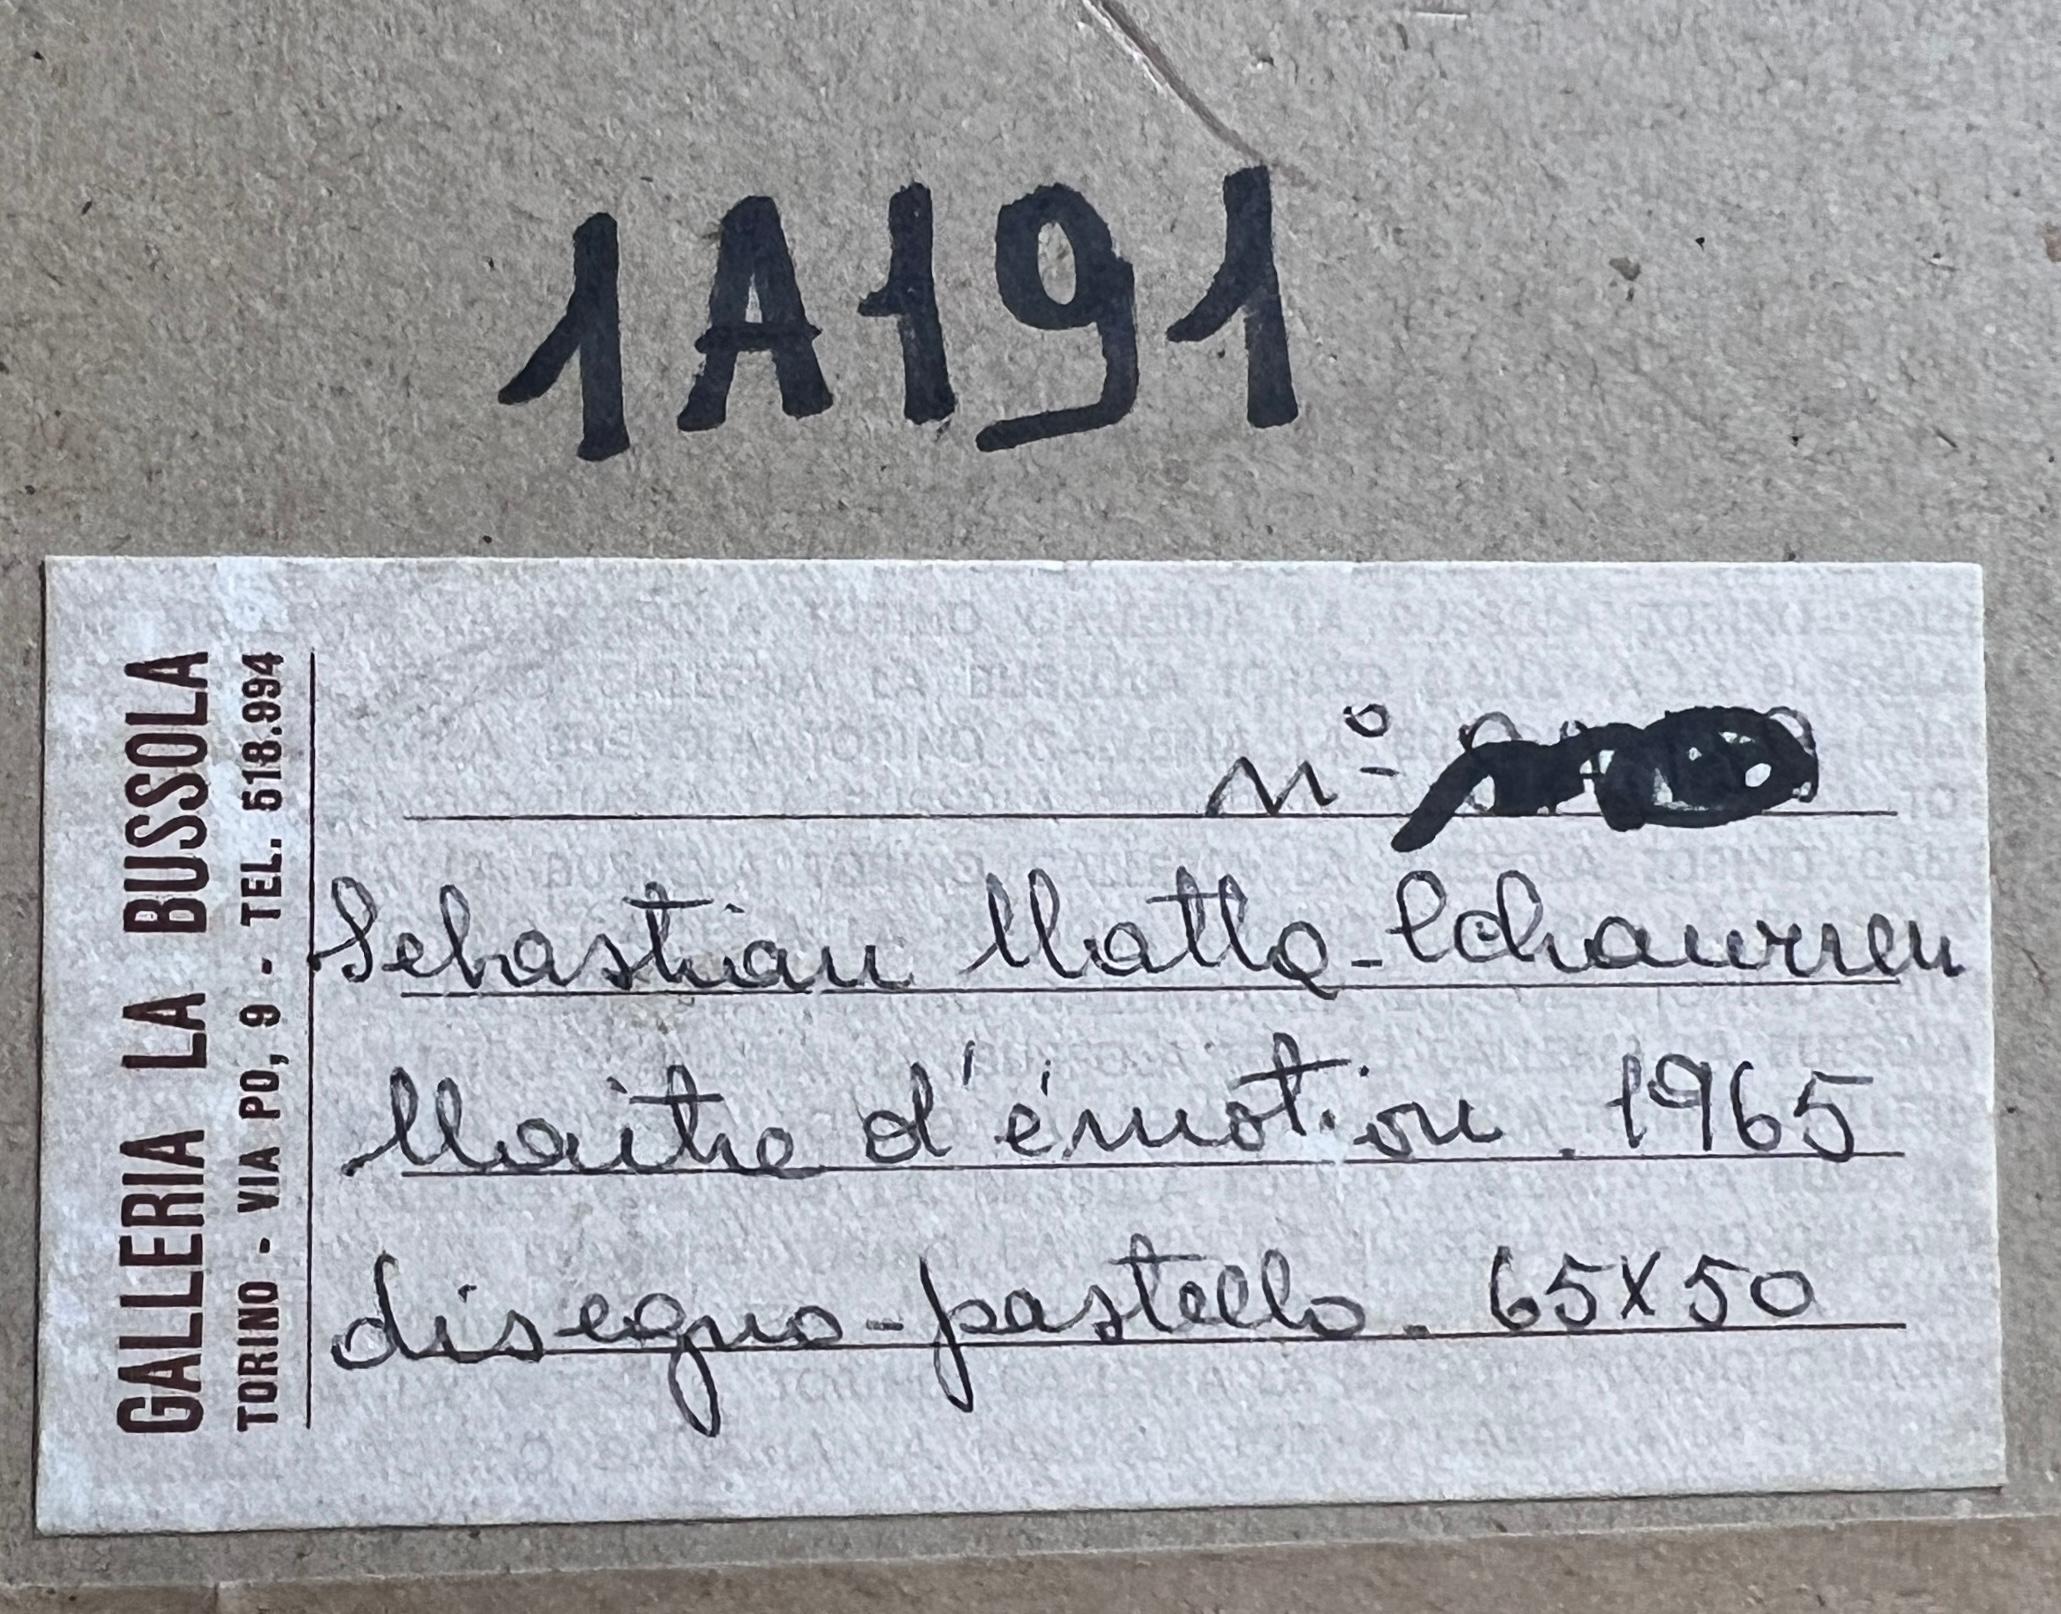 1A191
GALLERIA LA BUSSOLA
TORINO - VIA PO, 9 - TEL. 518.994
N°
Sebastian Matta-Echaurren
Maître d'émotion. 1965
disegno-pastello. 65X50